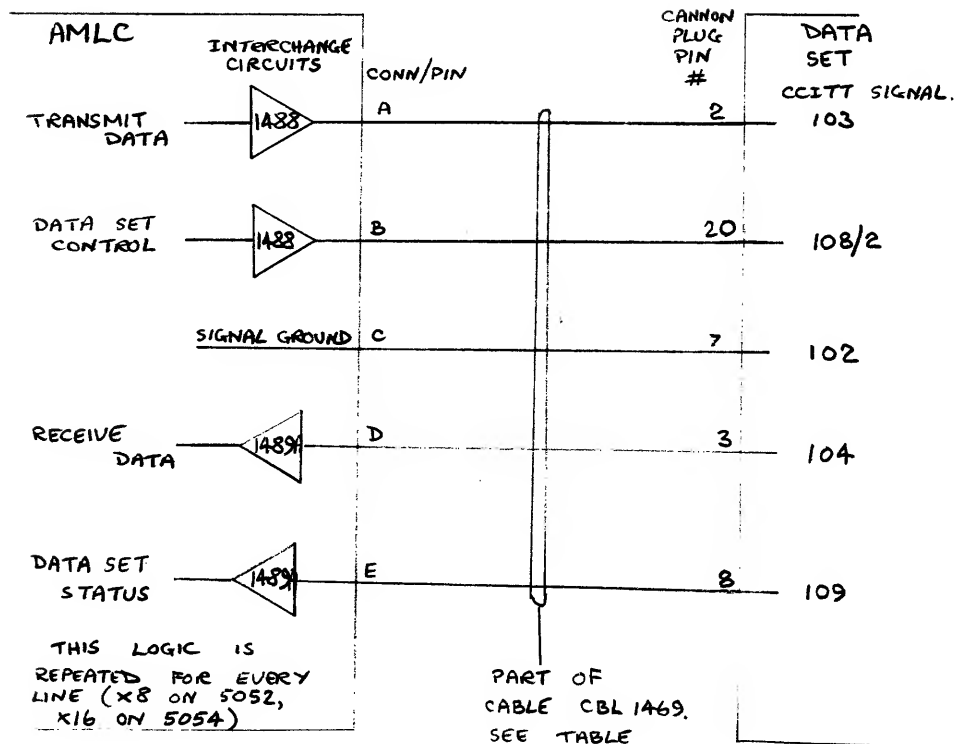 AMLC
INTERCHANGE
CIRCUITS
CONN/PIN
CANNON
PLUG
PIN
#
DATA
SET
CCITT SIGNAL.
TRANSMIT
DATA
1488
A
2
103
DATA SET
CONTROL
1488
B
20
108/2
SIGNAL GROUND
C
7
102
RECEIVE
DATA
1489A
D
3
104
DATA SET
STATUS
1489A
E
8
109
THIS LOGIC IS
REPEATED FOR EVERY
LINE (x8 ON 5052,
x16 ON 5054)
PART OF
CABLE CBL 1469.
SEE TABLE